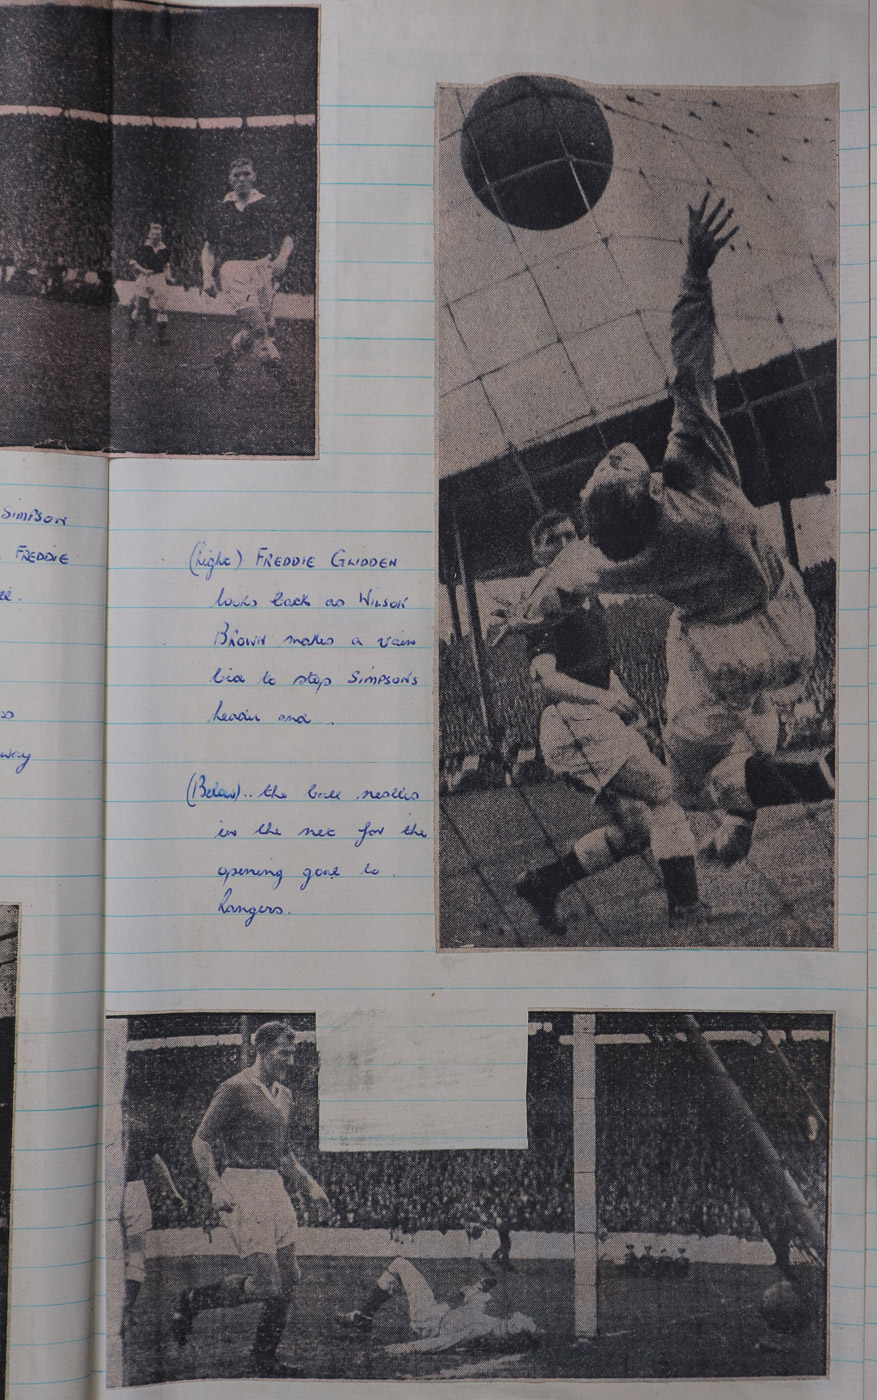 SIMPSON
FREDDIE
way
(Right) FREDDIE GLIDDEN
looks back as WILSON
BROWN makes a vain
bid to stop SIMPSONS
header and..
(Below).. the ball nestles
in the net for the
opening goal to
Rangers.